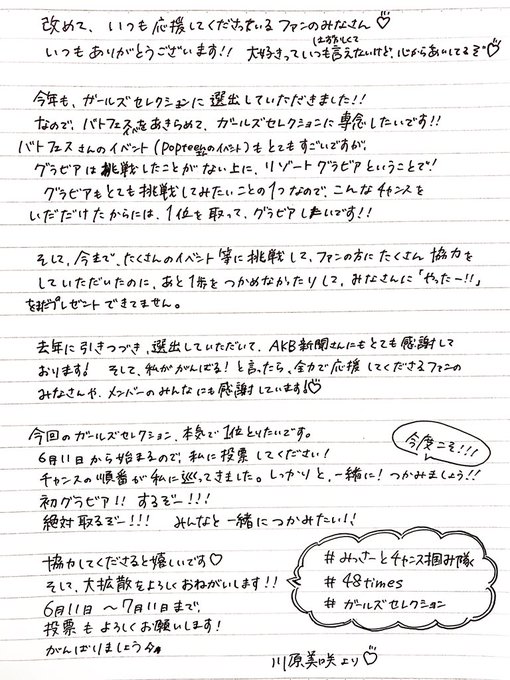 改めて、いつも応援してくださっているファンのみなさん♡
いつもありがとうございます!! 大好きって恥ずかしくていつも言えないけど、心からあいしてるぞ♡
今年も、ガールズセレクションに選出していただきました!!
なので、バトフェスイベをあきらめて、ガールズセレクションに専念したいです!!
バトフェスさんのイベント(Popteenさんのイベント)もとてもすごいですが、
グラビアは挑戦したことがない上に、リゾートグラビアということで!
グラビアもとても挑戦してみたいことの1つなので、こんなチャンスを
いただけたからには、1位を取って、グラビアしたいです!!
そして、今まで、たくさんのイベント等に挑戦して、ファンの方にたくさん協力を
していただいたのに、あと1歩をつかめなかったりして、みなさんに「やったー!!」
をまだプレゼントできてません。
去年に引きつづき、選出していただいて、AKB新聞さんにもとても感謝して
おります! そして、私ががんばる!と言ったら、全力で応援してくださるファンの
みなさんや、メンバーのみんなにも感謝しています!♡
今回のガールズセレクション、本気で1位とりたいです。
6月11日から始まるので、私に投票してください!
チャンスの順番が私に巡ってきました。しっかりと、一緒に!つかみましょう!!
今度こそ!!!
初グラビア!! するぞー!!!
絶対取るぞー!!! みんなと一緒につかみたい!!
協力してくださると嬉しいです♡
そして、大拡散をよろしくおねがいします!!
6月11日〜7月11日まで、
投票もよろしくお願いします!
がんばりましょう
#みっさーとチャンス掴み隊
#48times
#ガールズセレクション
川原美咲より♡